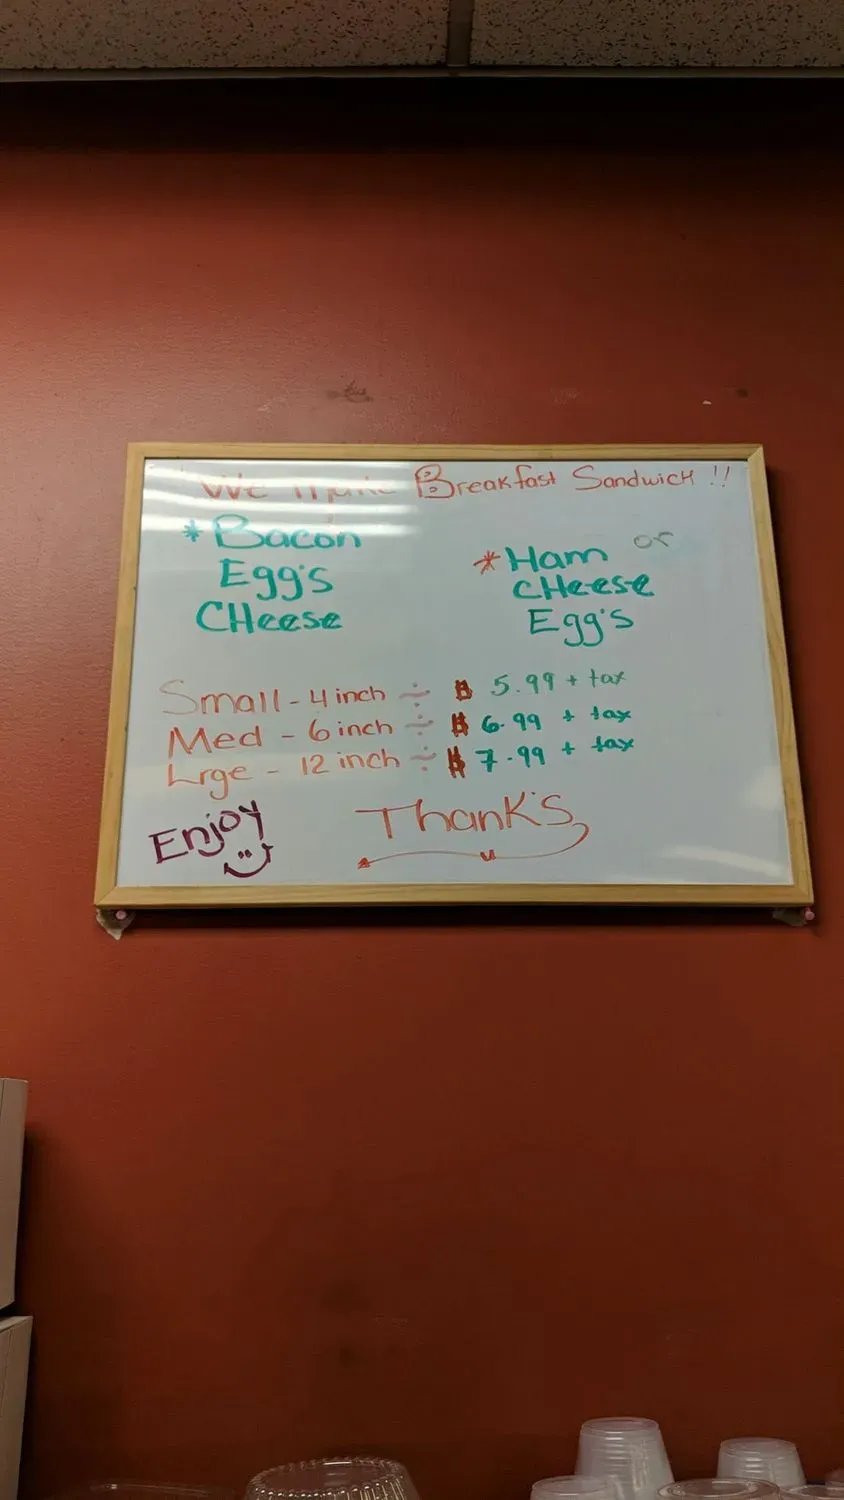 We make Breakfast Sandwich !!
* Bacon
Egg's
CHeese
or
* Ham
CHeese
Egg's
Small - 4 inch ÷ $ 5.99 + tax
Med - 6 inch ÷ $ 6.99 + tax
Lrge - 12 inch ÷ $ 7.99 + tax
Enjoy
Thank's